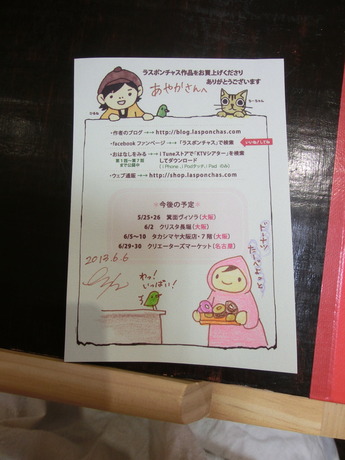 ラスポンチャス作品をお買上げくださり
ありがとうございます
あやかさんへ
・作者のブログ →→ http://blog.lasponchas.com
・facebook ファンページ →→「ラスポンチャス」で検索
・おはなしをみる →→ iTuneストアで「XTVシアター」を検索
してダウンロード
・ウェブ通販 →→ http://shop.lasponchas.com
＊今後の予定＊
5/25-26 箕面ヴィソラ(大阪)
6/2 クリスタ長堀(大阪)
6/5〜10 タカシマヤ大阪店・7階(大阪)
6/29-30 クリエーターズマーケット(名古屋)
2013.6.6
わっ!
いっぱい!